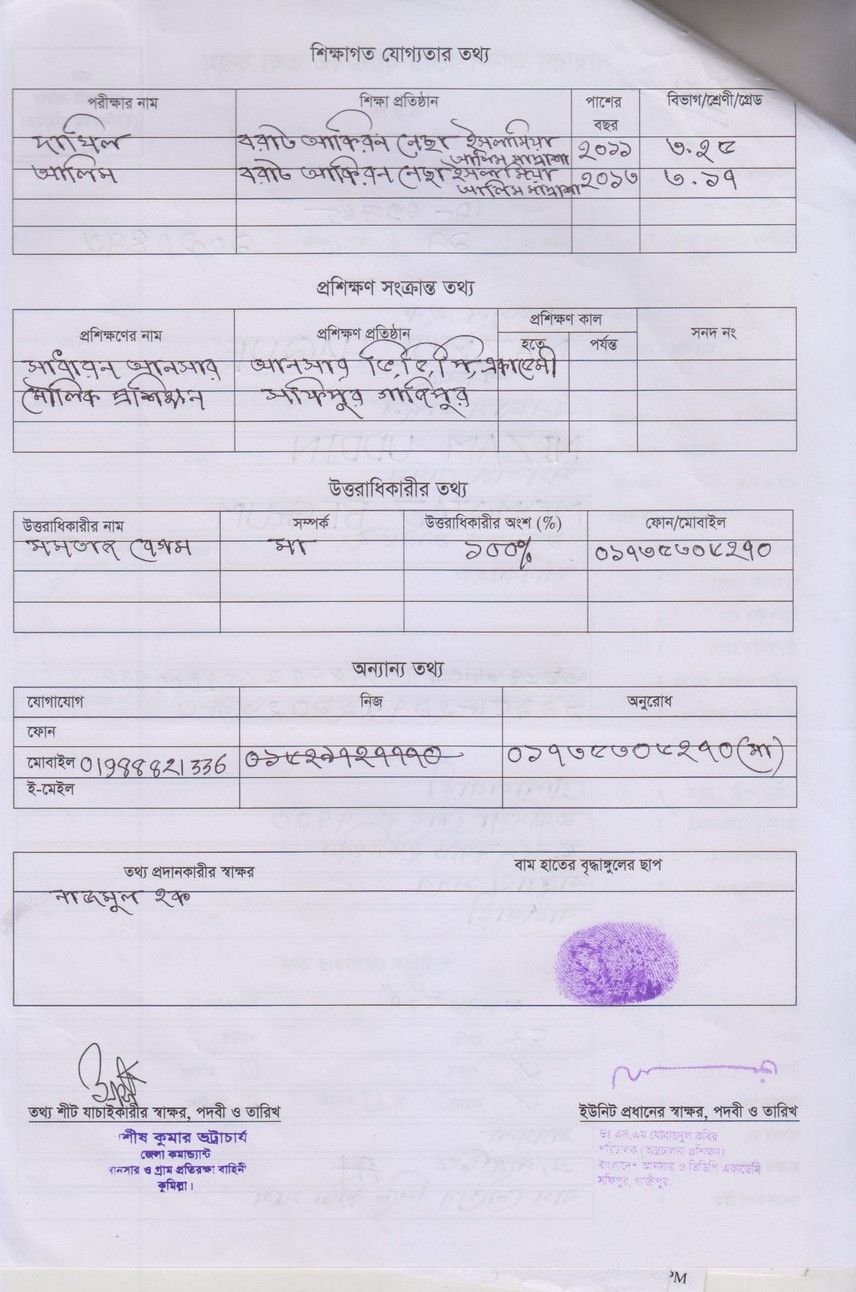 শিক্ষাগত যোগ্যতার তথ্য
পরীক্ষার নাম শিক্ষা প্রতিষ্ঠান পাশের বছর বিভাগ/শ্রেণী/গ্রেড
দাখিল বরাট আকিরন নেছা ইসলামিয়া আলিম মাদ্রাসা ২০১১ ৩.২৫
আলিম বরাট আকিরন নেছা ইসলামিয়া আলিম মাদ্রাসা ২০১৩ ৩.১৭
প্রশিক্ষণ সংক্রান্ত তথ্য
প্রশিক্ষণের নাম প্রশিক্ষণ প্রতিষ্ঠান প্রশিক্ষণ কাল সনদ নং
হতে পর্যন্ত
সাধারন আনসার আনসার ভি,ডি,পি,একাডেমী
মৌলিক প্রশিক্ষন সফিপুর গাজিপুর
উত্তরাধিকারীর তথ্য
উত্তরাধিকারীর নাম সম্পর্ক উত্তরাধিকারীর অংশ (%) ফোন/মোবাইল
মমতাজ বেগম মা ১০০% ০১৭৩৫৩০৫২৭০
অন্যান্য তথ্য
যোগাযোগ নিজ অনুরোধ
ফোন
মোবাইল 01988821336 ০১৭৩৫৩০৫২৭০(মা)
ই-মেইল
তথ্য প্রদানকারীর স্বাক্ষর বাম হাতের বৃদ্ধাঙ্গুলের ছাপ
নাজমুল হক
তথ্য শীট যাচাইকারীর স্বাক্ষর, পদবী ও তারিখ ইউনিট প্রধানের স্বাক্ষর, পদবী ও তারিখ
শীষ কুমার ভট্টাচার্য
জেলা কমান্ড্যান্ট
আনসার ও গ্রাম প্রতিরক্ষা বাহিনী
কুমিল্লা।
ডাঃ এস.এম যোবায়দুল কবির
পরিচালক (অস্ত্রচালনা প্রশিক্ষণ)
বাংলাদেশ আনসার ও ভিডিপি একাডেমি
সফিপুর, গাজীপুর
PM